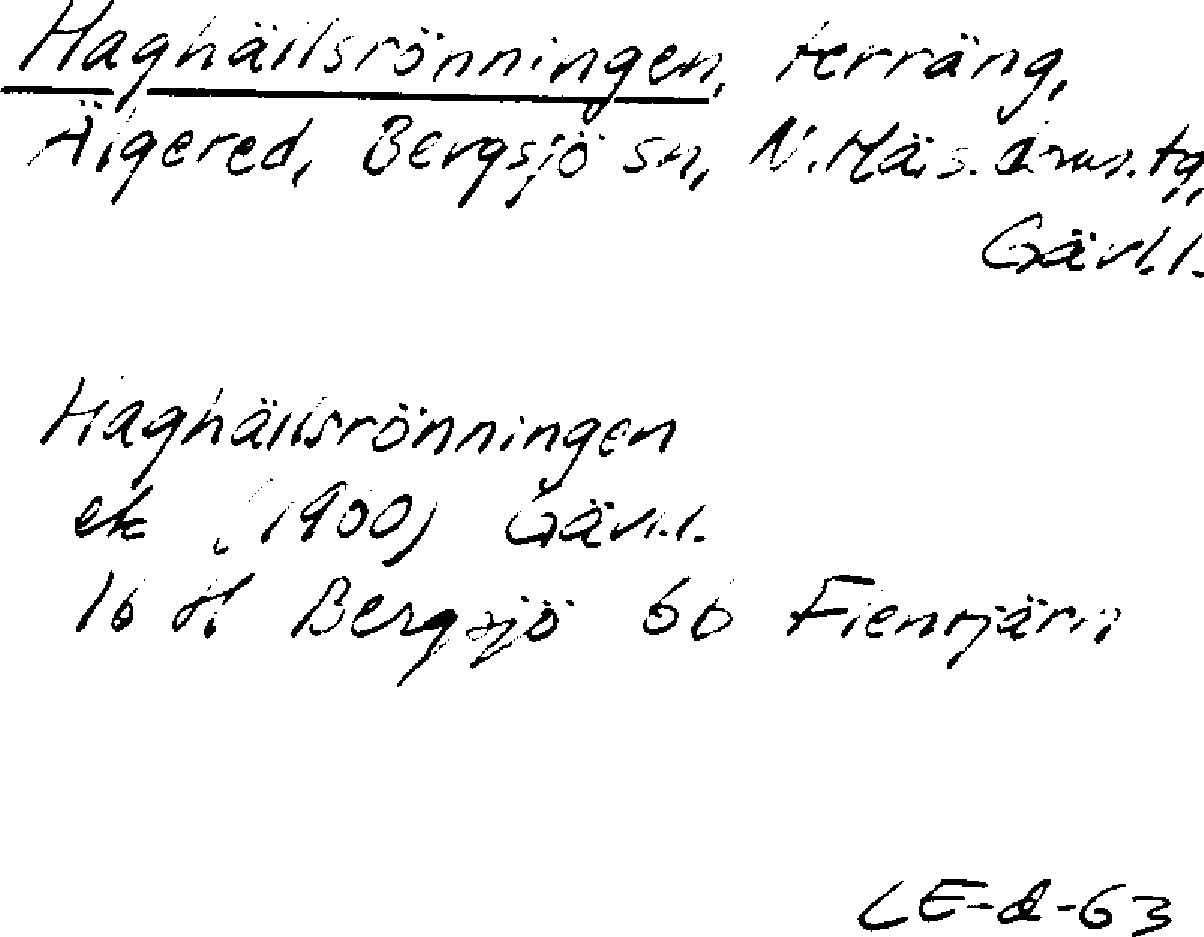 Haghällsrönningen, terräng,
Älgered, Bergsjö sn, N. Häls. doms. tg,
Gävl.l.
Haghällsrönningen
ek (1900) Gävl.l.
16 H Bergsjö 6b Flentjärn
CE-d-63